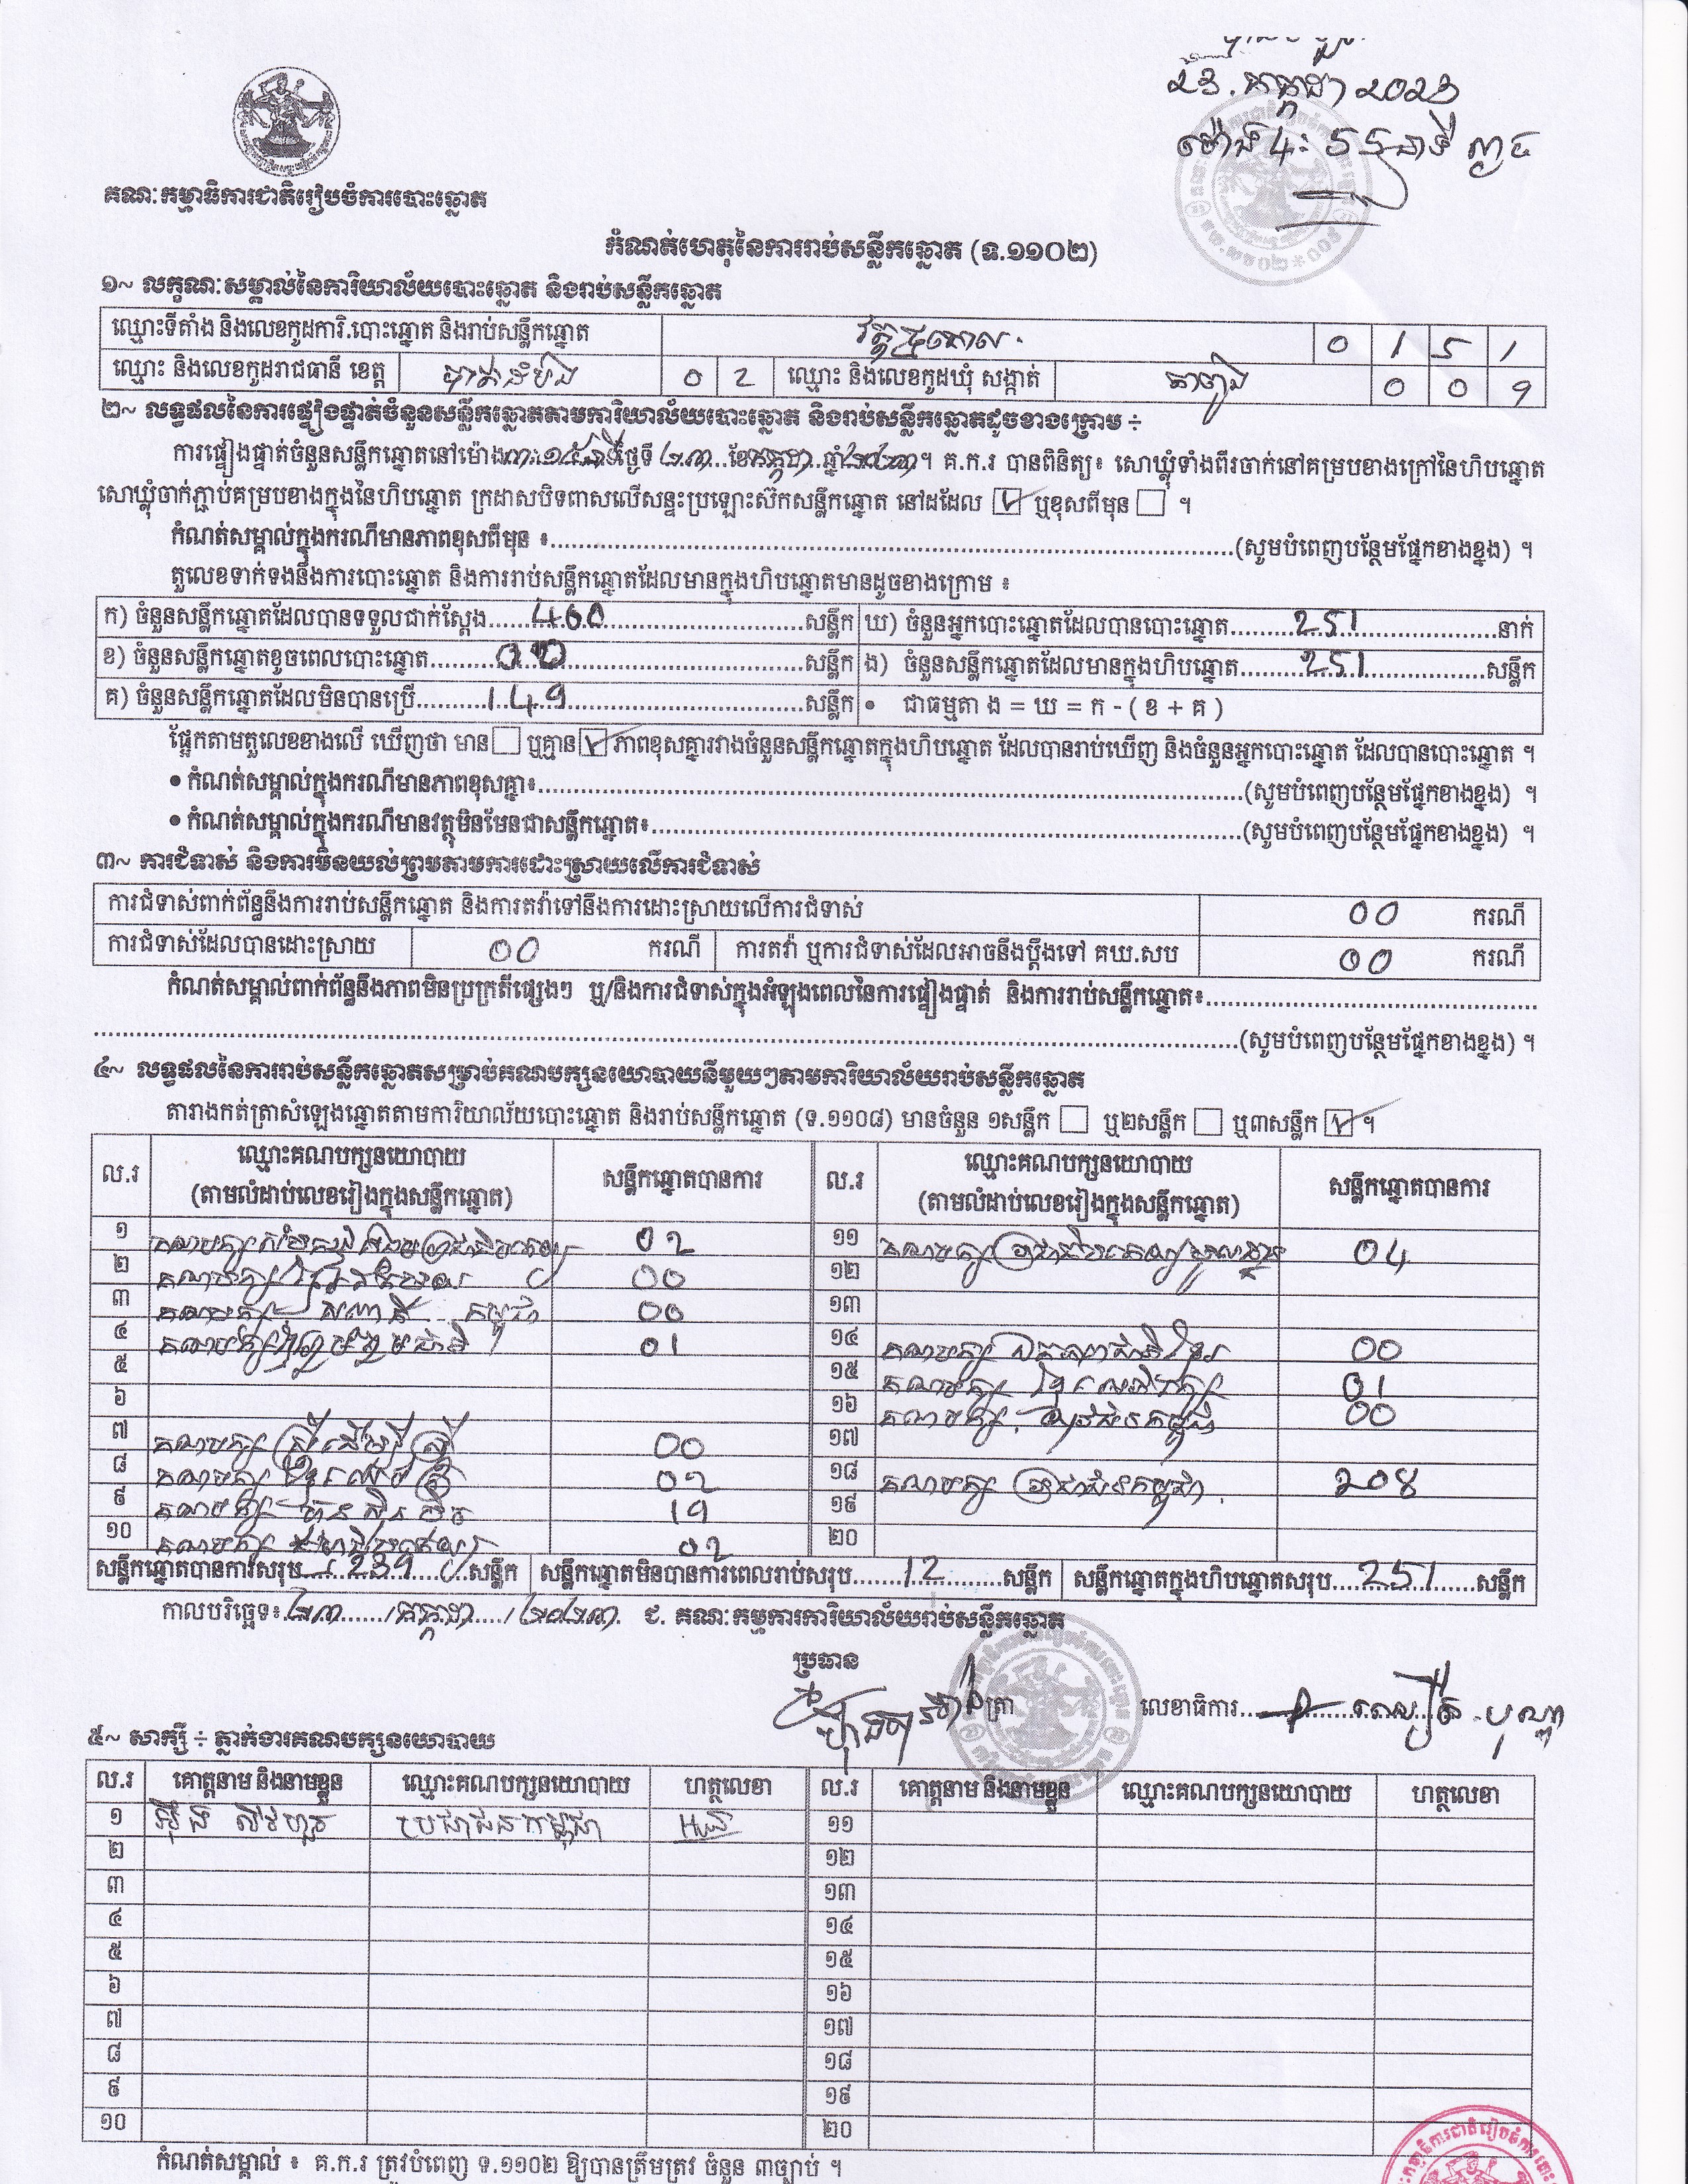 ២៣.កក្កដា ២០២៣
ម៉ោង 4: 55 នាទី ល្ងាច
គណៈកម្មាធិការជាតិរៀបចំការបោះឆ្នោត
កំណត់ហេតុនៃការរាប់សន្លឹកឆ្នោត (ទ.១១០២)
១~ លក្ខណៈសម្គាល់នៃការិយាល័យបោះឆ្នោត និងរាប់សន្លឹកឆ្នោត
ឈ្មោះទីតាំង និងលេខកូដការិ.បោះឆ្នោត និងរាប់សន្លឹកឆ្នោត 0 1 5 1
ឈ្មោះ និងលេខកូដរាជធានី ខេត្ត បាត់ដំបង 0 2 ឈ្មោះ និងលេខកូដឃុំ សង្កាត់ 0 0 9
២~ លទ្ធផលនៃការផ្ទៀងផ្ទាត់ចំនួនសន្លឹកឆ្នោតតាមការិយាល័យបោះឆ្នោត និងរាប់សន្លឹកឆ្នោតដូចខាងក្រោម ÷
ការផ្ទៀងផ្ទាត់ចំនួនសន្លឹកឆ្នោតនៅម៉ោង ៣:១៥ នាទី ថ្ងៃទី ២៣ ខែ កក្កដា ឆ្នាំ ២០២៣ ។ គ.ក.រ បានពិនិត្យ៖ សោឃ្លុំទាំងពីរចាក់នៅគម្របខាងក្រៅនៃហិបឆ្នោត
សោឃ្លុំចាក់ភ្ជាប់គម្របខាងក្នុងនៃហិបឆ្នោត ក្រដាសបិទពាសលើសន្ទះប្រឡោះស៊កសន្លឹកឆ្នោត នៅដដែល ☑ ឬខុសពីមុន ☐ ។
កំណត់សម្គាល់ក្នុងករណីមានភាពខុសពីមុន ៖...(សូមបំពេញបន្ថែមផ្នែកខាងខ្នង) ។
តួលេខទាក់ទងនឹងការបោះឆ្នោត និងការរាប់សន្លឹកឆ្នោតដែលមានក្នុងហិបឆ្នោតមានដូចខាងក្រោម ៖
ក) ចំនួនសន្លឹកឆ្នោតដែលបានទទួលជាក់ស្តែង...400...សន្លឹក ឃ) ចំនួនអ្នកបោះឆ្នោតដែលបានបោះឆ្នោត...251...នាក់
ខ) ចំនួនសន្លឹកឆ្នោតខូចពេលបោះឆ្នោត...00...សន្លឹក ង) ចំនួនសន្លឹកឆ្នោតដែលមានក្នុងហិបឆ្នោត...251...សន្លឹក
គ) ចំនួនសន្លឹកឆ្នោតដែលមិនបានប្រើ...149...សន្លឹក • ជាធម្មតា ង = ឃ = ក - ( ខ + គ )
ផ្អែកតាមតួលេខខាងលើ ឃើញថា មាន ☐ ឬគ្មាន ☑ ភាពខុសគ្នារវាងចំនួនសន្លឹកឆ្នោតក្នុងហិបឆ្នោត ដែលបានរាប់ឃើញ និងចំនួនអ្នកបោះឆ្នោត ដែលបានបោះឆ្នោត ។
• កំណត់សម្គាល់ក្នុងករណីមានភាពខុសគ្នា៖...(សូមបំពេញបន្ថែមផ្នែកខាងខ្នង) ។
• កំណត់សម្គាល់ក្នុងករណីមានវត្ថុមិនមែនជាសន្លឹកឆ្នោត៖...(សូមបំពេញបន្ថែមផ្នែកខាងខ្នង) ។
៣~ ការជំទាស់ និងការមិនយល់ព្រមតាមការដោះស្រាយលើការជំទាស់
ការជំទាស់ពាក់ព័ន្ធនឹងការរាប់សន្លឹកឆ្នោត និងការតវ៉ាទៅនឹងការដោះស្រាយលើការជំទាស់ 00 ករណី
ការជំទាស់ដែលបានដោះស្រាយ 00 ករណី ការតវ៉ា ឬការជំទាស់ដែលអាចនឹងប្តឹងទៅ គឃ.សប 00 ករណី
កំណត់សម្គាល់ពាក់ព័ន្ធនឹងភាពមិនប្រក្រតីផ្សេងៗ ឬ/និងការជំទាស់ក្នុងអំឡុងពេលនៃការផ្ទៀងផ្ទាត់ និងការរាប់សន្លឹកឆ្នោត៖...
...(សូមបំពេញបន្ថែមផ្នែកខាងខ្នង) ។
៤~ លទ្ធផលនៃការរាប់សន្លឹកឆ្នោតសម្រាប់គណបក្សនយោបាយនីមួយៗតាមការិយាល័យរាប់សន្លឹកឆ្នោត
តារាងកត់ត្រាសំឡេងឆ្នោតតាមការិយាល័យបោះឆ្នោត និងរាប់សន្លឹកឆ្នោត (ទ.១១០៨) មានចំនួន ១សន្លឹក ☐ ឬ២សន្លឹក ☐ ឬ៣សន្លឹក ☑ ។
ល.រ ឈ្មោះគណបក្សនយោបាយ (តាមលំដាប់លេខរៀងក្នុងសន្លឹកឆ្នោត) សន្លឹកឆ្នោតបានការ ល.រ ឈ្មោះគណបក្សនយោបាយ (តាមលំដាប់លេខរៀងក្នុងសន្លឹកឆ្នោត) សន្លឹកឆ្នោតបានការ
១ គណបក្ស 02 ១១ គណបក្ស ប្រជាធិបតេយ្យមូលដ្ឋាន 04
២ គណបក្ស 00 ១២
៣ គណបក្ស កម្ពុជា 00 ១៣
៤ គណបក្ស 01 ១៤ គណបក្ស ឯកភាពជាតិខ្មែរ 00
៥ ១៥ គណបក្ស 01
៦ ១៦ គណបក្ស កម្ពុជា 00
៧ គណបក្ស ស្រ្តីដើម្បីស្ត្រី 00 ១៧
៨ គណបក្ស 02 ១៨ គណបក្ស ប្រជាជនកម្ពុជា 208
៩ គណបក្ស ហ៊្វុនស៊ិនប៉ិច 19 ១៩
១០ គណបក្ស 02 ២០
សន្លឹកឆ្នោតបានការសរុប...239...សន្លឹក សន្លឹកឆ្នោតមិនបានការពេលរាប់សរុប...12...សន្លឹក សន្លឹកឆ្នោតក្នុងហិបឆ្នោតសរុប...251...សន្លឹក
កាលបរិច្ឆេទ៖ ២៣ / កក្កដា / ២០២៣ ជ. គណៈកម្មការការិយាល័យរាប់សន្លឹកឆ្នោត
ប្រធាន
ត្រា លេខាធិការ
៥~ សាក្សី ÷ ភ្នាក់ងារគណបក្សនយោបាយ
ល.រ គោត្តនាម និងនាមខ្លួន ឈ្មោះគណបក្សនយោបាយ ហត្ថលេខា ល.រ គោត្តនាម និងនាមខ្លួន ឈ្មោះគណបក្សនយោបាយ ហត្ថលេខា
១ ប្រជាជនកម្ពុជា ១១
២ ១២
៣ ១៣
៤ ១៤
៥ ១៥
៦ ១៦
៧ ១៧
៨ ១៨
៩ ១៩
១០ ២០
កំណត់សម្គាល់ ៖ គ.ក.រ ត្រូវបំពេញ ទ.១១០២ ឱ្យបានត្រឹមត្រូវ ចំនួន ៣ច្បាប់ ។